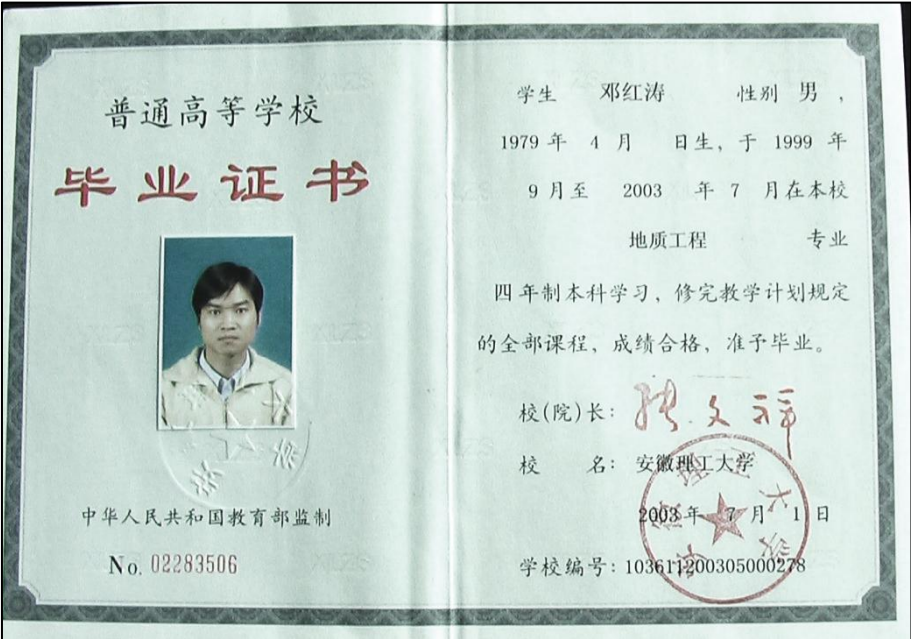 普通高等学校
毕业证书
中华人民共和国教育部监制
No. 02283506
学生 邓红涛 性别 男 ，
1979 年 4 月 日生，于 1999 年
9 月至 2003 年 7 月在本校
地质工程 专业
四年制本科学习，修完教学计划规定
的全部课程，成绩合格，准予毕业。
校（院）长：
校 名：安徽理工大学
2003 年 7 月 1 日
学校编号：103611200305000278